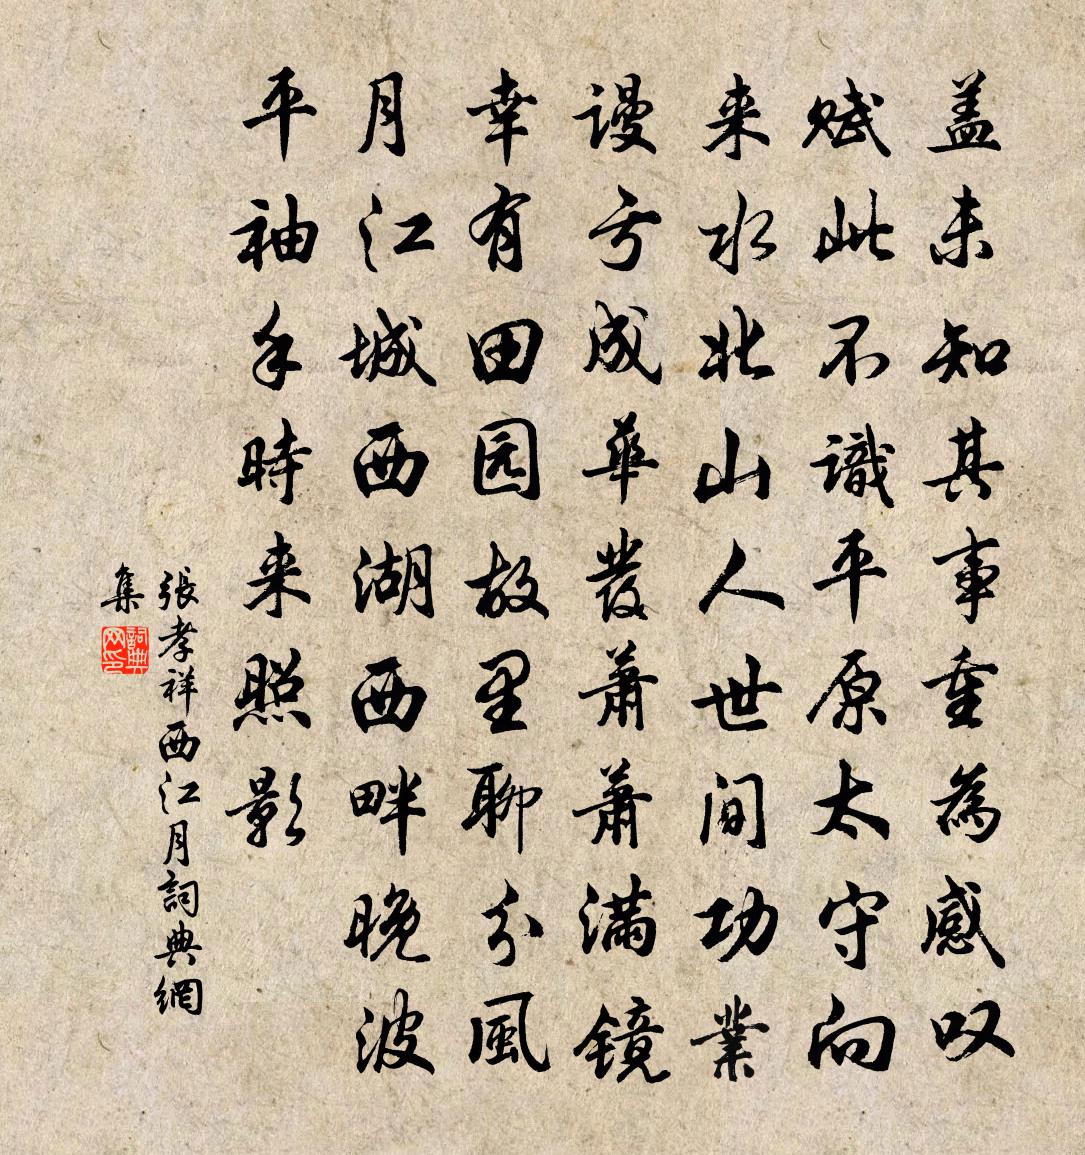 盖未知其事重為感叹
賦此不識平原太守向
来水北山人世间功業
謾亏成華發蕭蕭满镜
幸有田园故里聊分風
月江城西湖西畔晚波
平袖手時来照影
張孝祥西江月詞典網
集
詞典
网印